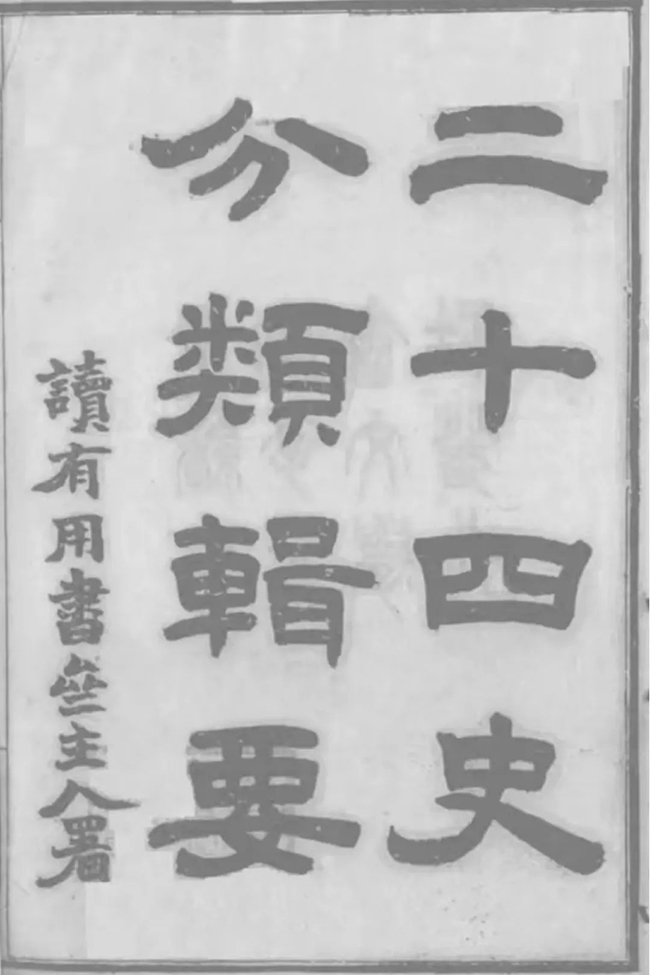 二十四史
分類輯要
讀有用書亝主人署